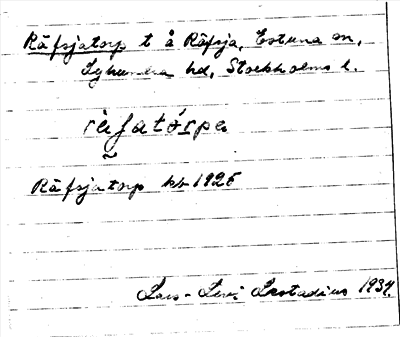 Räfsjatorp t å Räfsja, Estuna sn,
Lyhundra hd, Stockholms l.
ræ̀fatórpa
Räfsjatorp kb 1925
Lars-Levi Læstadius 1934.